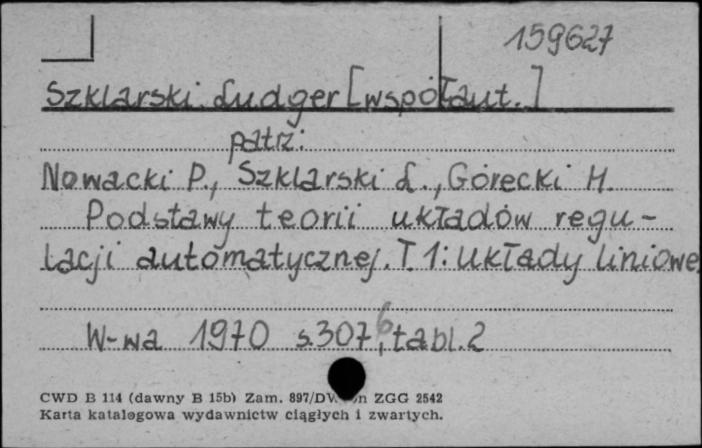 159627
Szklarski Ludger [współaut.]
patrz:
Nowacki P., Szklarski L., Górecki H.
Podstawy teorii układów regu-
lacji automatycznej. T 1: Układy liniowe
W-wa 1970 s. 307, tabl. 2
CWD B 114 (dawny B 15b) Zam. 897/DW ZGG 2542
Karta katalogowa wydawnictw ciągłych i zwartych.